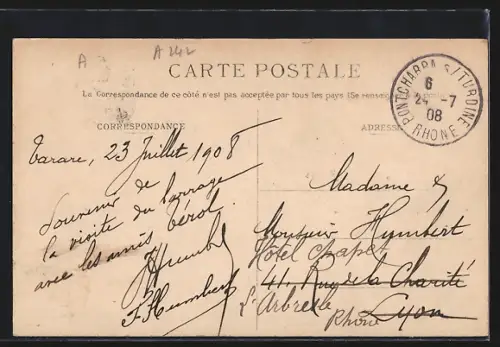 A
A 242
CARTE POSTALE
La Correspondance de ce côté n'est pas acceptée par tous les pays (Se renseigner
CORRESPONDANCE
ADRESSE
PONTCHARRA S/TURDINE
6
24 -7
08
RHONE
Tarare, 23 Juillet 1908
Souvenir de
la visite du barrage
avec les amis Térol.
JHumbert
F. Humbert
Madame &
Monsieur Humbert
Hôtel Chapet
41, Rue de la Charité
L'Arbresle
Lyon
Rhône